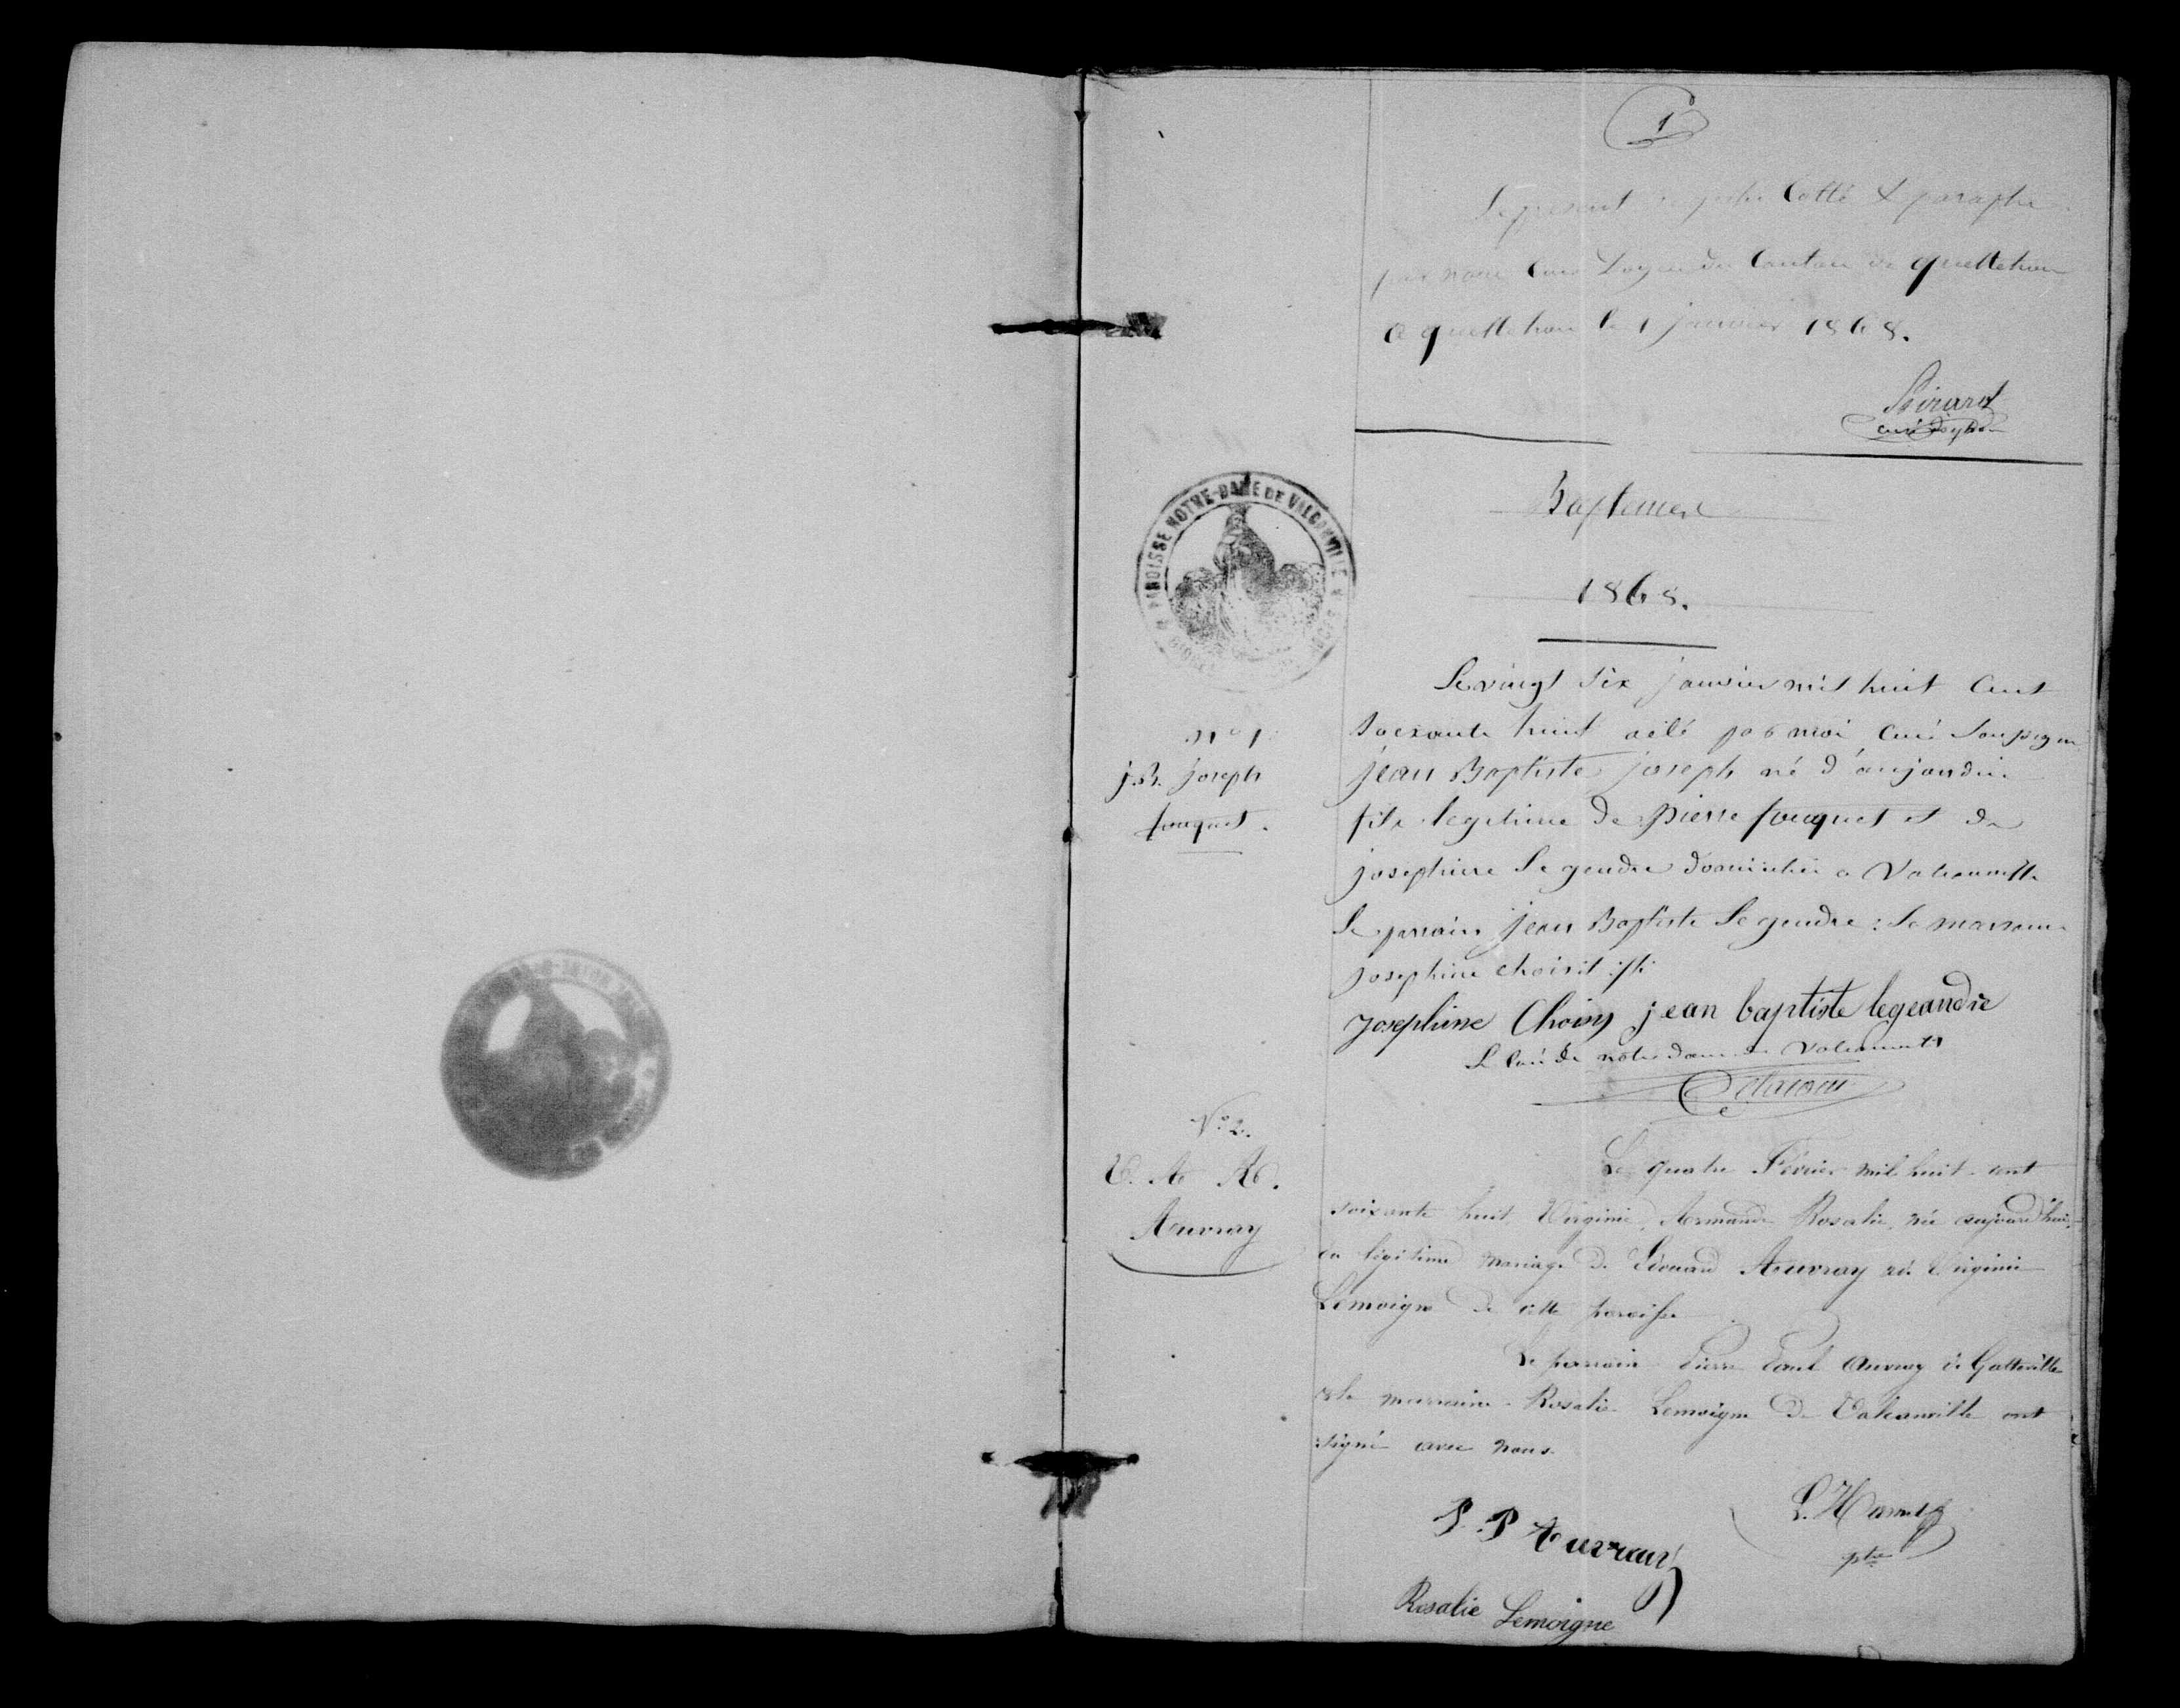 1
Le present registre Cotté & paraphé
par nous Curé Doyen du Canton de quettehou
a quettehou le 1 janvier 1868.
curé doyen
PAROISSE NOTRE-DAME DE VALCANVILLE
Baptemes
1868.
Le vingt six janvier mil huit Cent
N° 1.
J.B. joseph
fouquet.
soixante huit a été par moi Curé soussigné
jean Baptiste joseph né d'aujourdui
fils legitime de pierre fouquet et de
josephine Le gendre domiciliés a Valcanville
Le parrain jean Baptiste Le gendre : La marraine
josephine choisit
josephine Choisy jean baptiste legeandre
Le Curé de notre dame de Valcanville
N° 2.
V. A. R.
Auvray
Le quatre Février mil huit-cent
soixante huit, Virginie, Armande Rosalie, née aujourd'hui,
du légitime mariage de Edouard Auvray & de Virginie
Lemoigne de cette paroisse
Le parrain Pierre Paul Auvray de Gatteville
& la marraine Rosalie Lemoigne de Valcanville ont
signé avec nous
P. P Auvray
ptre
Rosalie Lemoigne